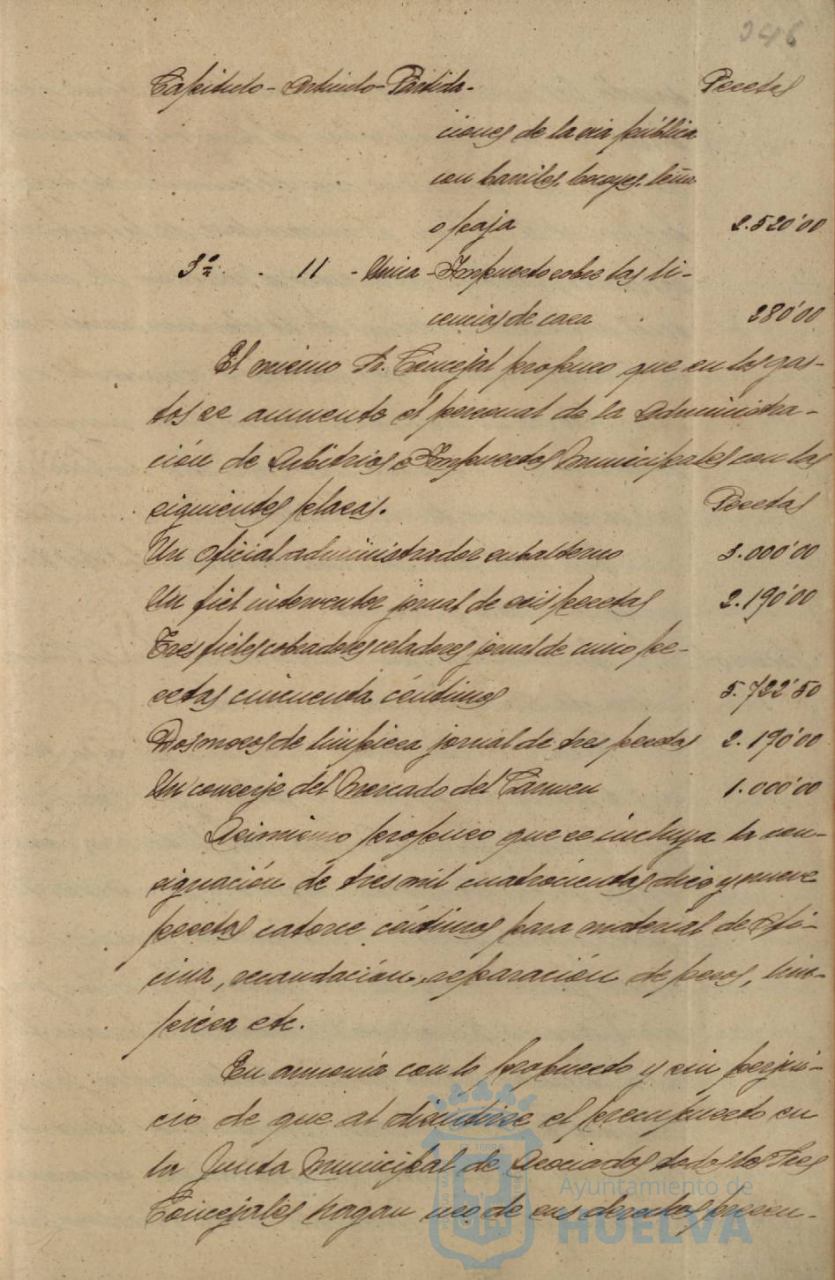 246
Capitulo - Articulo - Partida - Pecetas
ciones de la via pública
con barriles, bocoyes, leña
o paja 2.520'00
3º - 11 - Unica - Impuesto sobre las li-
cencias de caza 280'00
El mismo Sr. Concejal propuso que en los gas-
tos se aumente el personal de la Administra-
ción de Arbitrios e Impuestos Municipales con las
siguientes plazas. Pecetas
Un oficial administrador subalterno 3.000'00
Un fiel interventor jornal de seis pecetas 2.190'00
Tres fieles cobradores celadores jornal de cinco pe-
cetas cincuenta céntimos 5.722'50
Dos mozos de limpieza jornal de tres pecetas 2.190'00
Un conserje del Mercado del Carmen 1.000'00
Asimismo propuso que se incluya la con-
signación de tres mil cuatrocientas diez y nueve
pecetas catorce céntimos para material de ofi-
cina, recaudación, reparación de pesos, lim-
pieza etc.
En armonía con lo propuesto y sin perjui-
cio de que al discutirse el presupuesto en
la Junta Municipal de Asociados todos los Sres
Concejales hagan uso de sus derechos
Ayuntamiento de
HUELVA